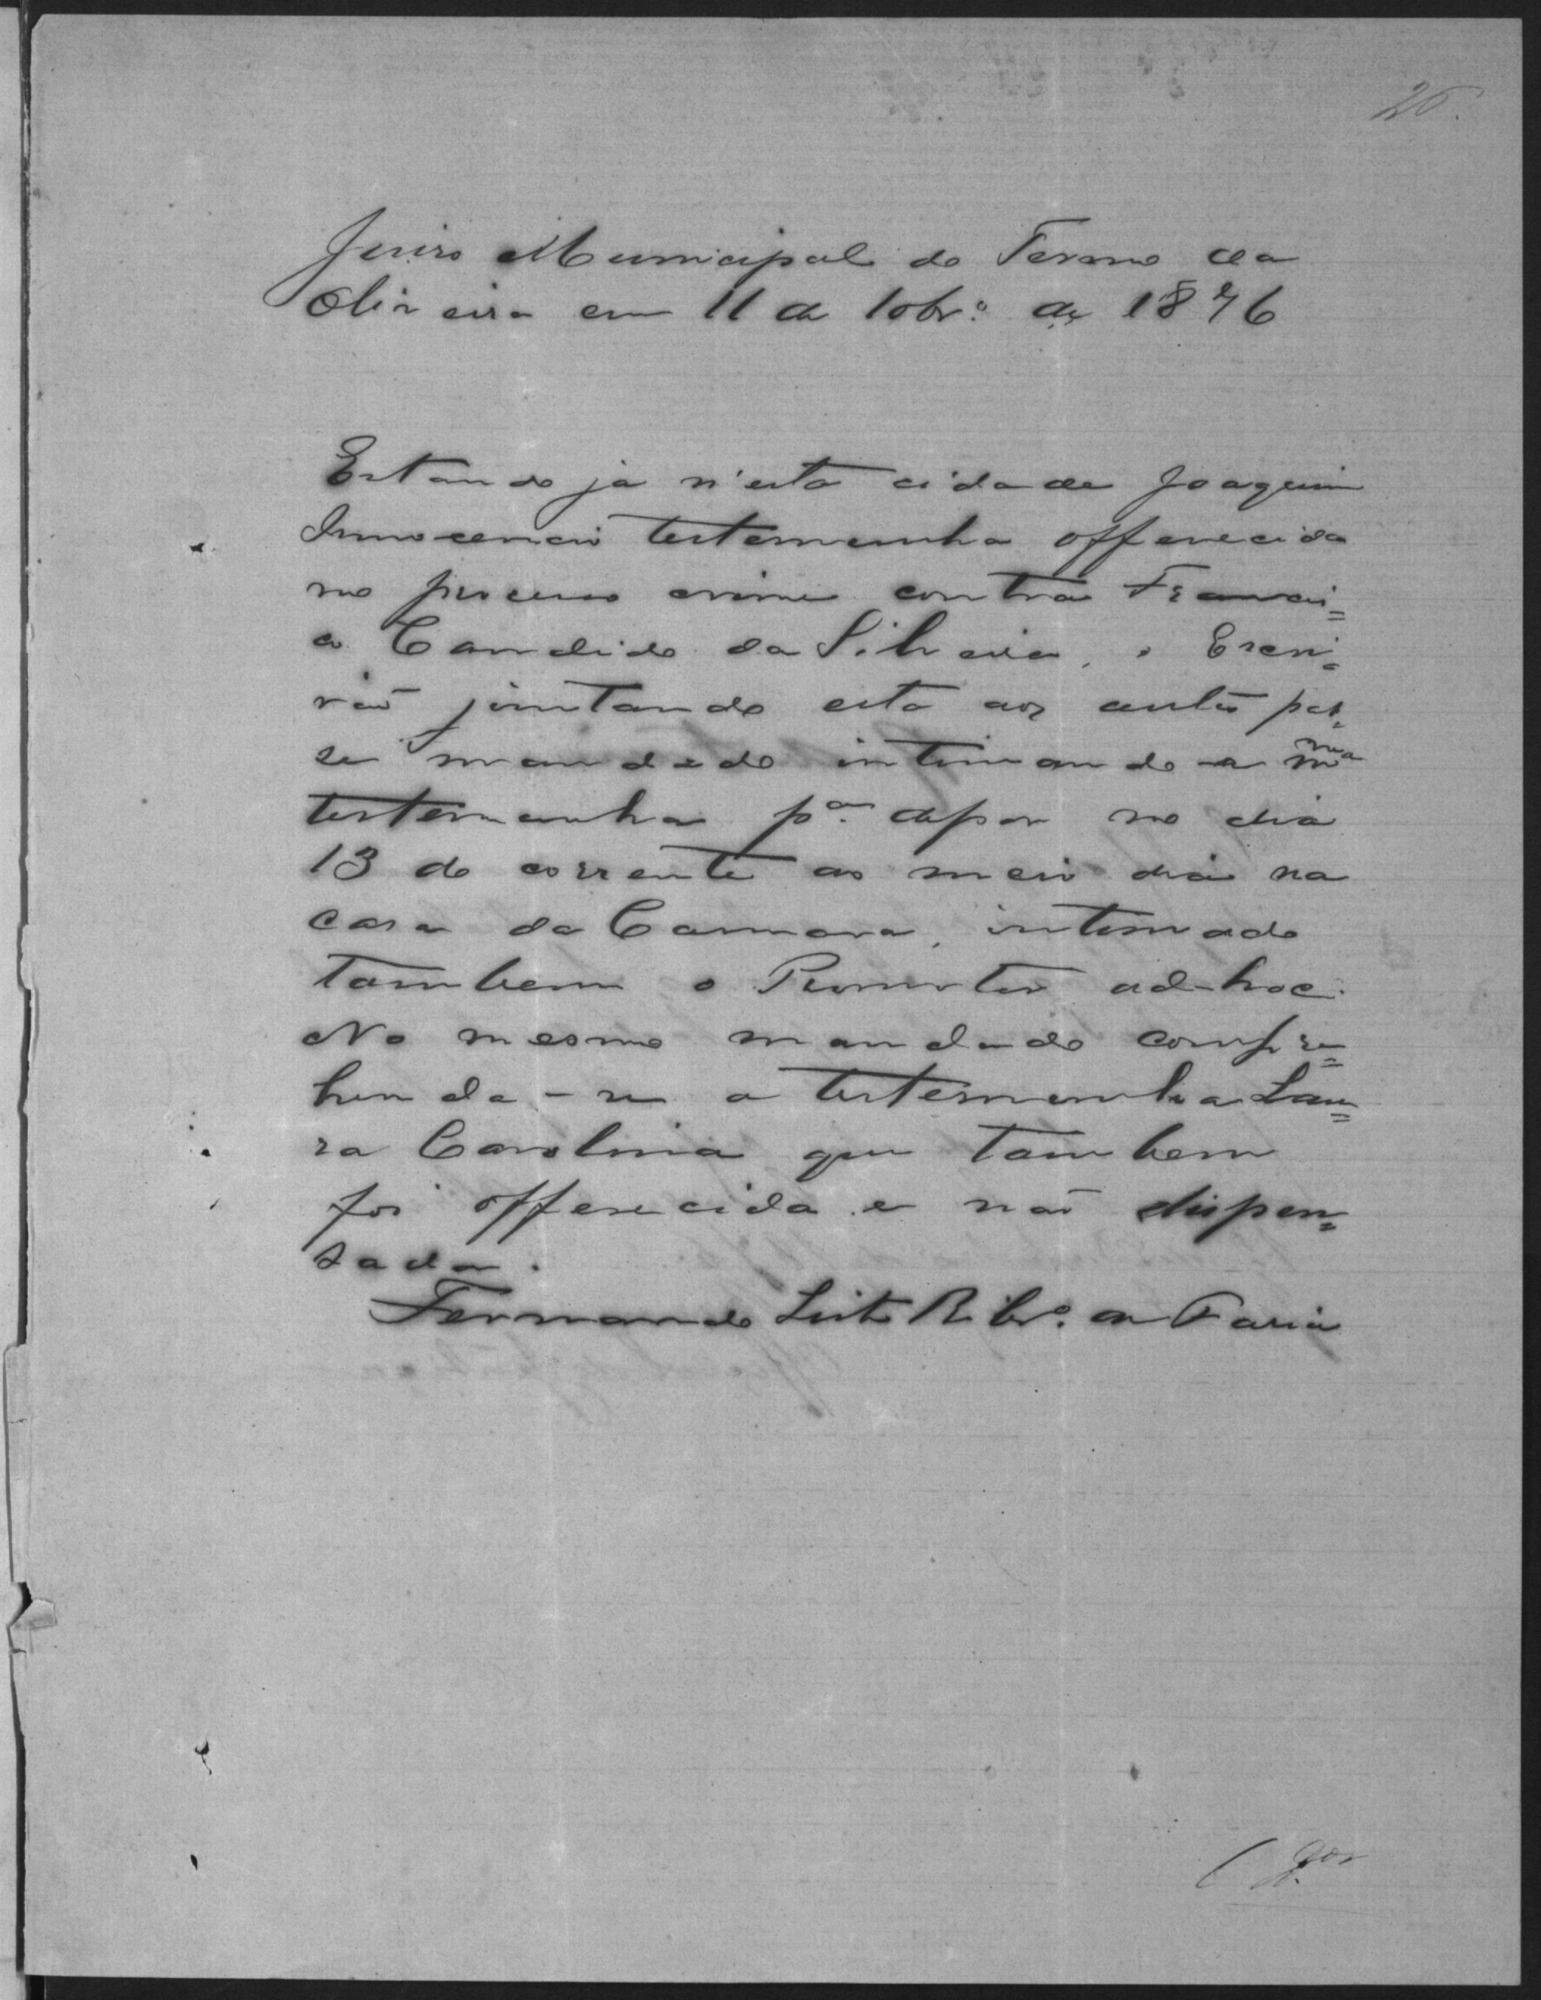 26.
Juizo Municipal do Termo da
Oliveira em 11 de 10br.º de 1876
Estando já n'esta cidade Joaquim
Innocencio testemunha offerecida
no processo crime contra Franci=
co Candido da Silveira, o Escri=
vaõ juntando esta aos autos pas=
se mandado intimando a m.ma
testemunha p.a depor no dia
13 do corrente ao meio dia na
casa da Camara, intimado
tambem o Promotor ad-hoc.
No mesmo mandado compre=
henda-se a testemunha Lau=
ra Carolina que tambem
foi offerecida e naõ dispen=
sada.
Fernando Leite Ribr.º de Faria